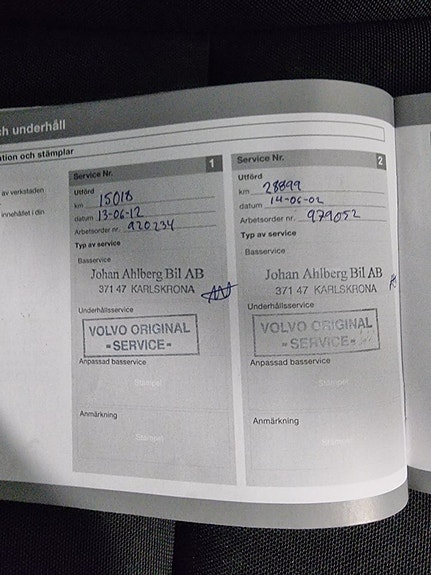 ch underhåll
ation och stämplar
av verkstaden
innehållet i din
Service Nr. 1
Utförd
km 15018
datum 13-06-12
Arbetsorder nr. 920234
Typ av service
Basservice
Johan Ahlberg Bil AB
371 47 KARLSKRONA
Underhållsservice
VOLVO ORIGINAL
-SERVICE-
Anpassad basservice
Stämpel
Anmärkning
Stämpel
Service Nr. 2
Utförd
km 28899
datum 14-06-02
Arbetsorder nr. 979052
Typ av service
Basservice
Johan Ahlberg Bil AB
371 47 KARLSKRONA
Underhållsservice
VOLVO ORIGINAL
-SERVICE-
Anpassad basservice
Stämpel
Anmärkning
Stämpel